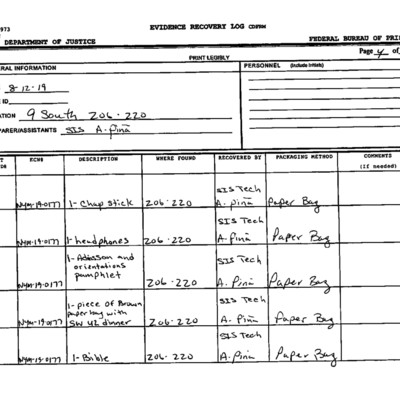 973
EVIDENCE RECOVERY LOG CDFRM
DEPARTMENT OF JUSTICE
FEDERAL BUREAU OF PRI
PRINT LEGIBLY
Page 4 of
RAL INFORMATION
PERSONNEL (Include Initials)
8-12-19
ID
ATION 9 South 206-220
PARER/ASSISTANTS SIS A. Piña
ECN# DESCRIPTION WHERE FOUND RECOVERED BY PACKAGING METHOD COMMENTS
(if needed)
NYM-19-0177 1-Chap stick 206-220 SIS Tech A. Piña Paper Bag
NYM-19-0177 1-headphones 206-220 SIS Tech A. Piña Paper Bag
1-Admission and
orientations
pamphlet
NYM-19-0177 206-220 SIS Tech A. Piña Paper Bag
1-piece of Brown
paper bag with
NYM-19-0177 dinner 206-220 SIS Tech A. Piña Paper Bag
NYM-19-0177 1-Bible 206-220 SIS Tech A. Piña Paper Bag